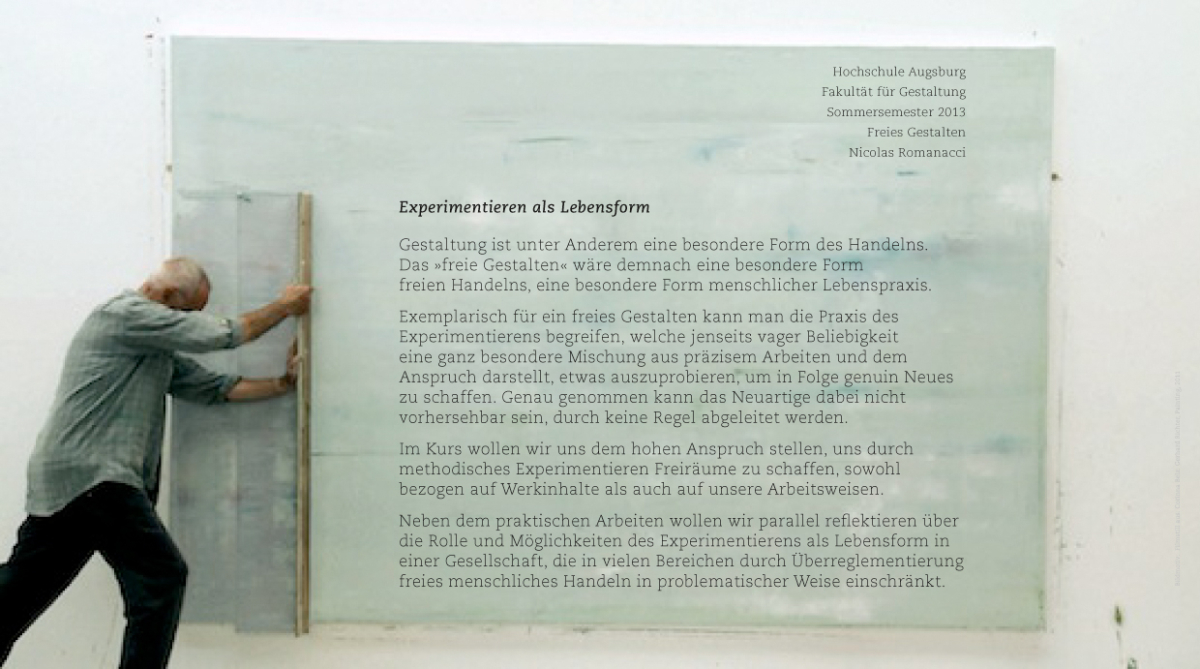 Hochschule Augsburg
Fakultät für Gestaltung
Sommersemester 2013
Freies Gestalten
Nicolas Romanacci
Experimentieren als Lebensform
Gestaltung ist unter Anderem eine besondere Form des Handelns.
Das »freie Gestalten« wäre demnach eine besondere Form
freien Handelns, eine besondere Form menschlicher Lebenspraxis.
Exemplarisch für ein freies Gestalten kann man die Praxis des
Experimentierens begreifen, welche jenseits vager Beliebigkeit
eine ganz besondere Mischung aus präzisem Arbeiten und dem
Anspruch darstellt, etwas auszuprobieren, um in Folge genuin Neues
zu schaffen. Genau genommen kann das Neuartige dabei nicht
vorhersehbar sein, durch keine Regel abgeleitet werden.
Im Kurs wollen wir uns dem hohen Anspruch stellen, uns durch
methodisches Experimentieren Freiräume zu schaffen, sowohl
bezogen auf Werkinhalte als auch auf unsere Arbeitsweisen.
Neben dem praktischen Arbeiten wollen wir parallel reflektieren über
die Rolle und Möglichkeiten des Experimentierens als Lebensform in
einer Gesellschaft, die in vielen Bereichen durch Überreglementierung
freies menschliches Handeln in problematischer Weise einschränkt.